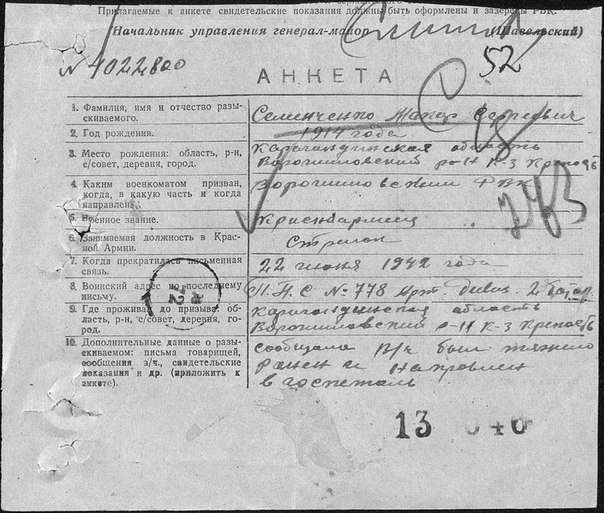 Прилагаемые к анкете свидетельские показания должны быть оформлены и заверены РВК.
Начальник управления генерал-майор (Шавельский)
№ 1022800
52
АНКЕТА
1. Фамилия, имя и отчество разыскиваемого.
Семенченко Макар Сергеевич
2. Год рождения.
1914 года
3. Место рождения: область, р-н, с/совет, деревня, город.
Карагандинская область
Ворошиловский р-н к-з
4. Каким военкоматом призван, когда, в какую часть и когда направлен.
Ворошиловским РВК
5. Военное звание.
Красноармеец
6. Занимаемая должность в Красной Армии.
Стрелок
7. Когда прекратилась письменная связь.
22 июня 1942 года
8. Воинский адрес по последнему письму.
П.П.С № 778 Арт. дивиз. 2 батар.
9. Где проживал до призыва: область, р-н, с/совет, деревня, город.
Карагандинская область
Ворошиловский р-н к-з
10. Дополнительные данные о разыскиваемом: письма товарищей, сообщения в/ч., свидетельские показания и др. (приложить к анкете).
сообщала в/ч был тяжело
ранен и направлен
в госпеталь
13 046